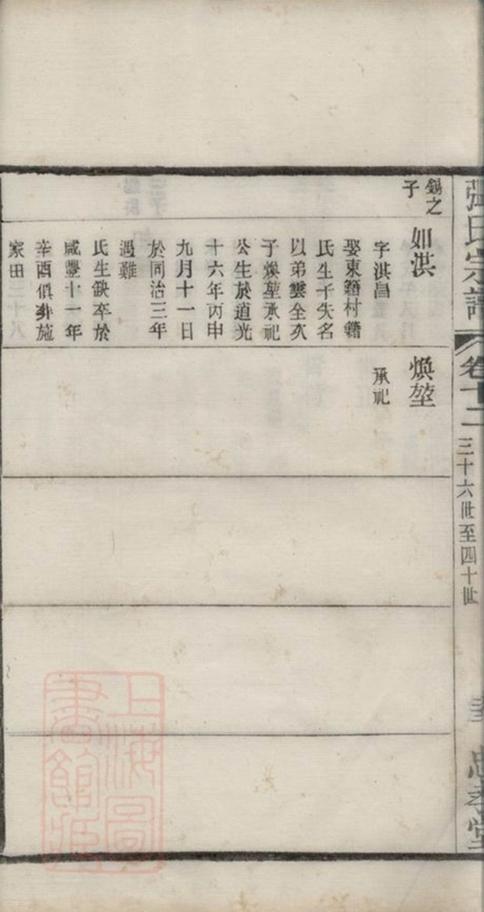 張氏宗譜
卷十二
三十六世至四十世
忠孝堂
錫之
子
如洪
字淇昌
娶東籍村籍
氏生子失名
以弟雲全次
子煥堃承祀
公生於道光
十六年丙申
九月十一日
於同治三年
遇難
氏生缺卒於
咸豐十一年
辛酉俱葬施
家田三十八
煥堃
承祀
上海圖
書館藏